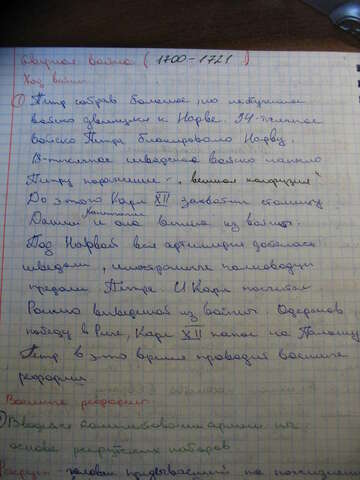 Северная война (1700-1721)
Ход войны
① Петр собрав большое, но необученное
войско двинулся к Нарве. 34-тысячное
войско Петра блокировало Нарву.
тысячное шведское войско нанесло
Петру поражение - "великая конфузия"
До этого Карл XII захватил столицу
Дании Копенгаген и она вышла из войны.
Под Нарвой вся артиллерия досталась
шведам, иностранные полководцы
предали Петра. И Карл посчитал
Россию выведенной из войны. Одержав
победу в Риге, Карл XII напал на Польшу
Петр в это время проводит военные
реформы
Военные реформы
Введение армии на
основе рекрутских наборов
Рекрут - человек призываемый на